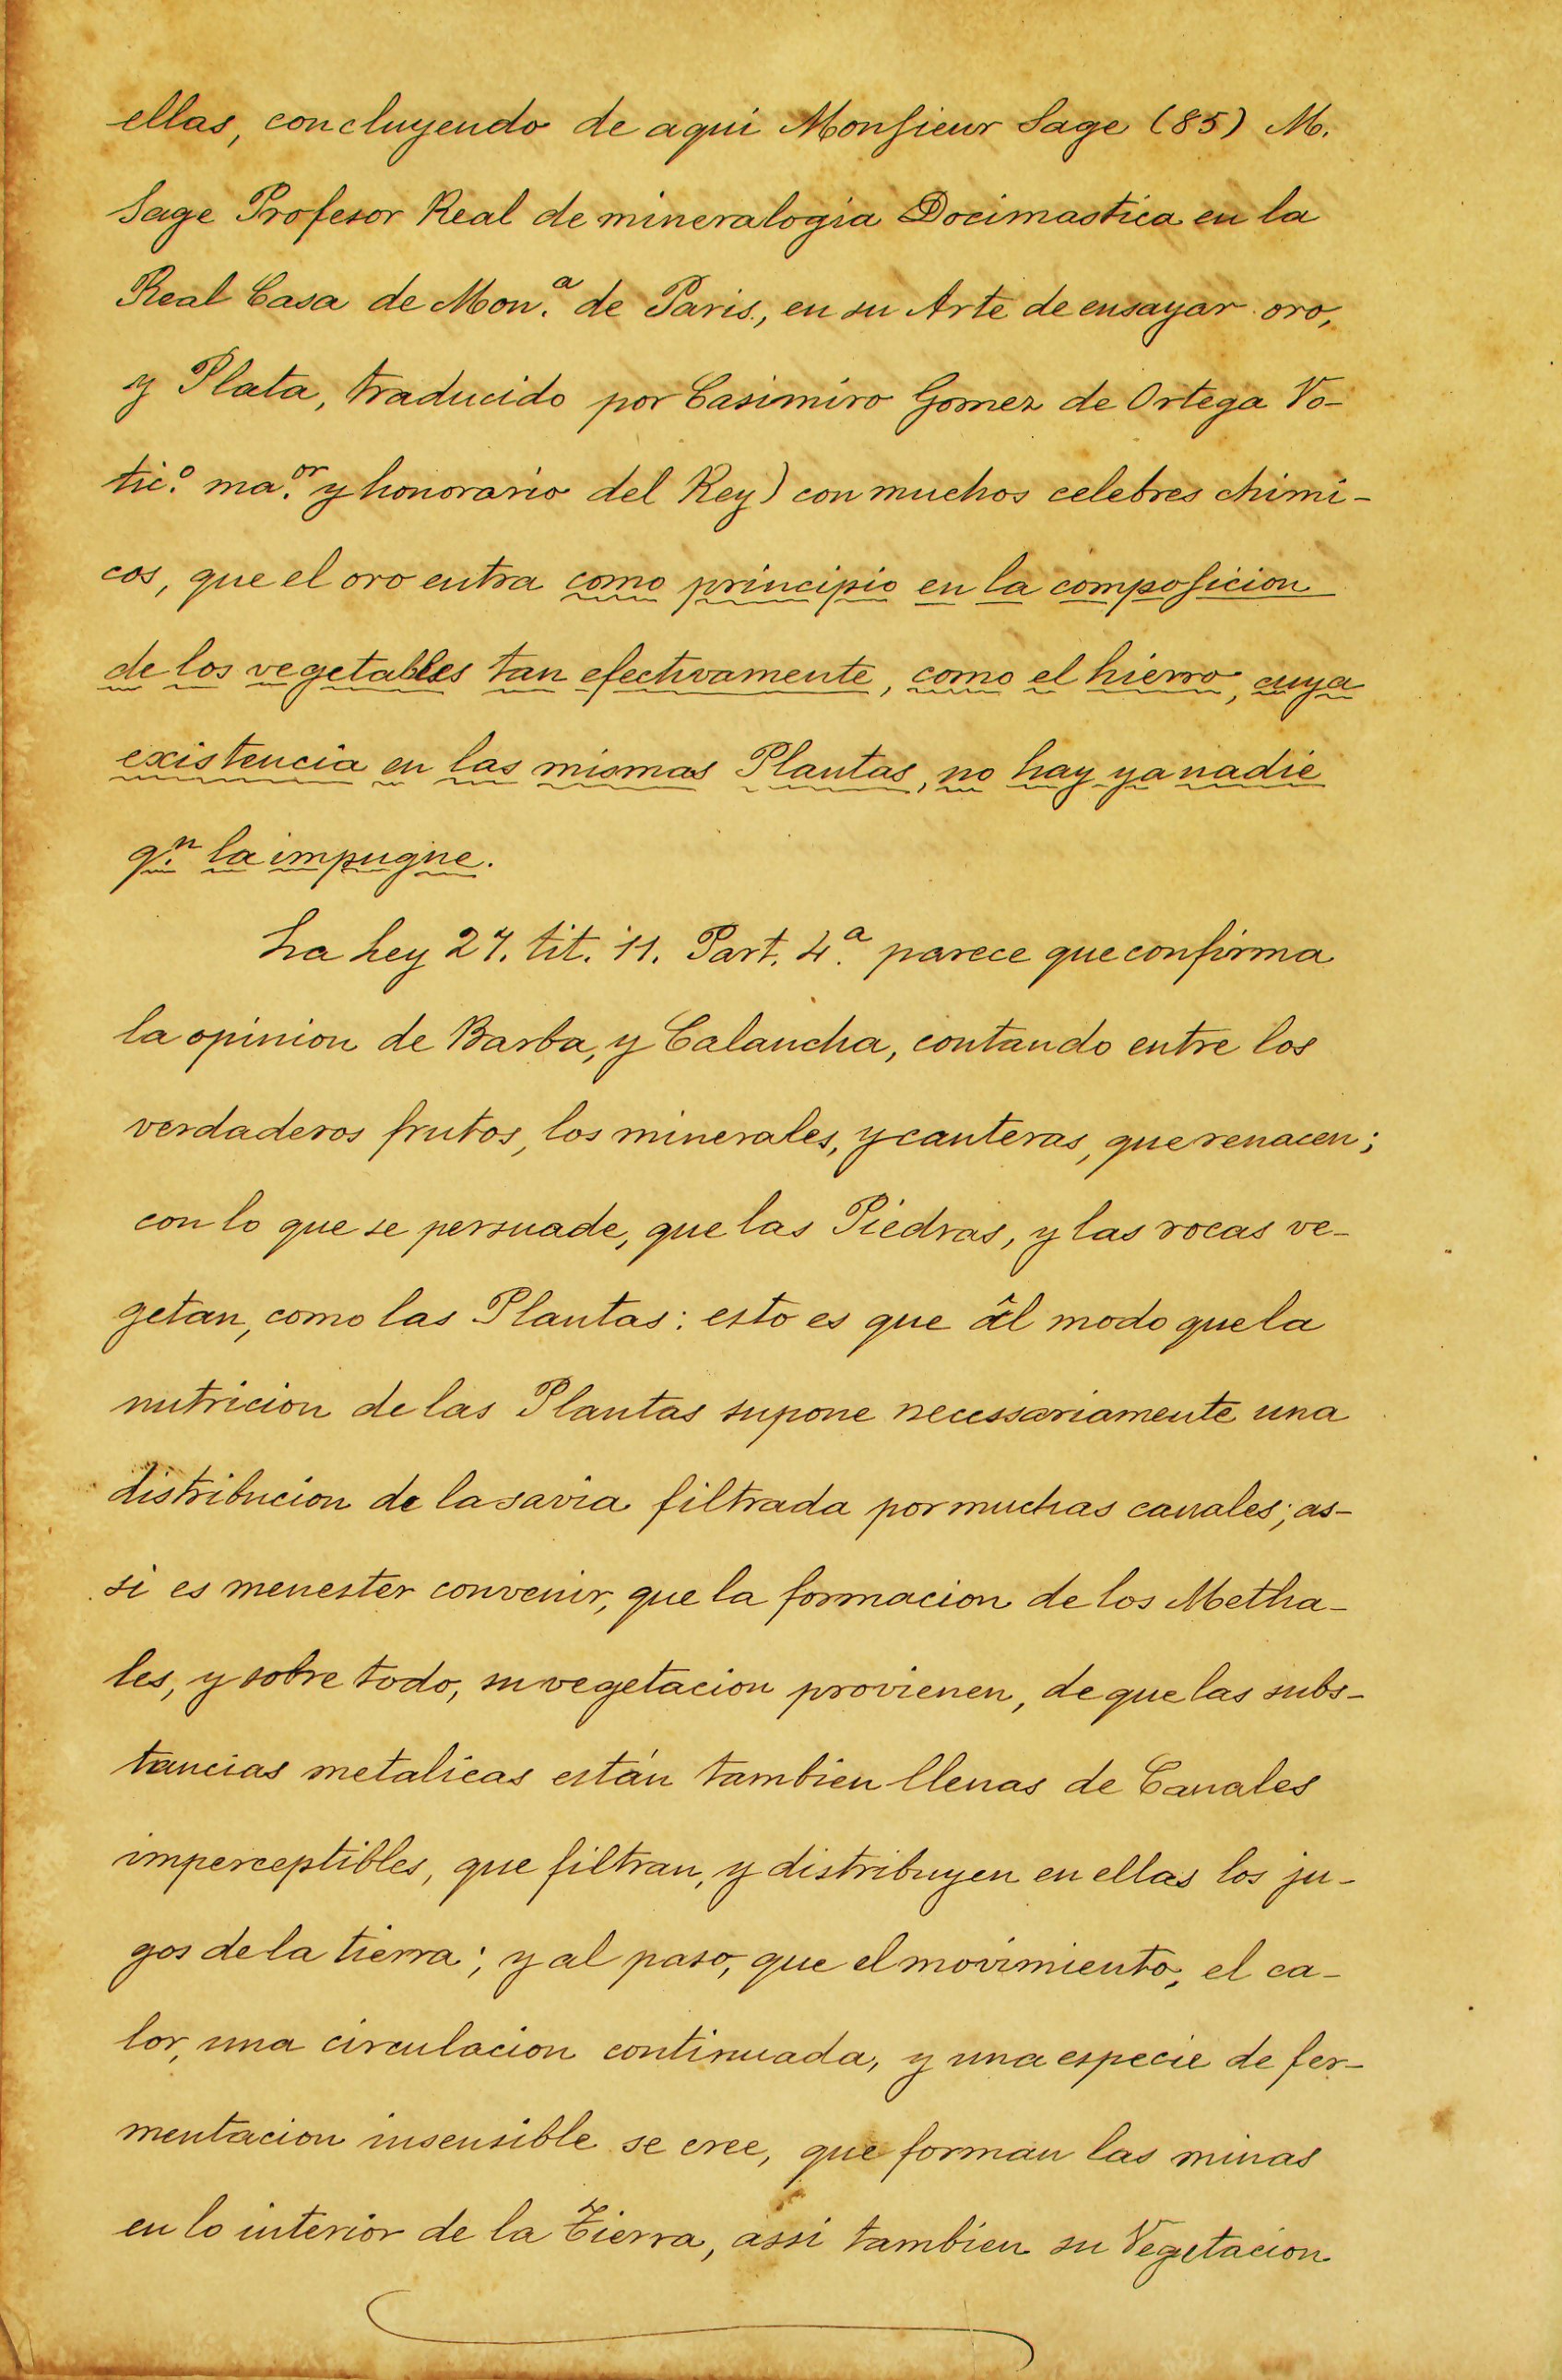 ellas, concluyendo de aqui Monsieur Sage (85) M.
Sage Profesor Real de mineralogia Docimastica en la
Real Casa de Mon.ª de Paris, en su Arte de ensayar oro,
y Plata, traducido por Casimiro Gomez de Ortega Vo-
tic.º ma.or y honorario del Rey) con muchos celebres chimi-
cos, que el oro entra como principio en la composicion
de los vegetables tan efectivamente, como el hierro, cuya
existencia en las mismas Plantas, no hay ya nadie
q.n la impugne.
La Ley 27. tit. 11. Part. 4.ª parece que confirma
la opinion de Barba, y Calancha, contando entre los
verdaderos frutos, los minerales, y canteras, que renacen;
con lo que se persuade, que las Piedras, y las rocas ve-
getan, como las Plantas: esto es que âl modo que la
nutricion de las Plantas supone necessariamente una
distribucion de la savia filtrada por muchas canales; as-
si es menester convenir, que la formacion de los Metha-
les, y sobre todo, su vegetacion provienen, de que las subs-
tancias metalicas están tambien llenas de Canales
imperceptibles, que filtran, y distribuyen en ellas los ju-
gos de la tierra; y al paso, que el movimiento, el ca-
lor, una circulacion continuada, y una especie de fer-
mentacion insensible se cree, que forman las minas
en lo interior de la Tierra, assi tambien su Vegetacion